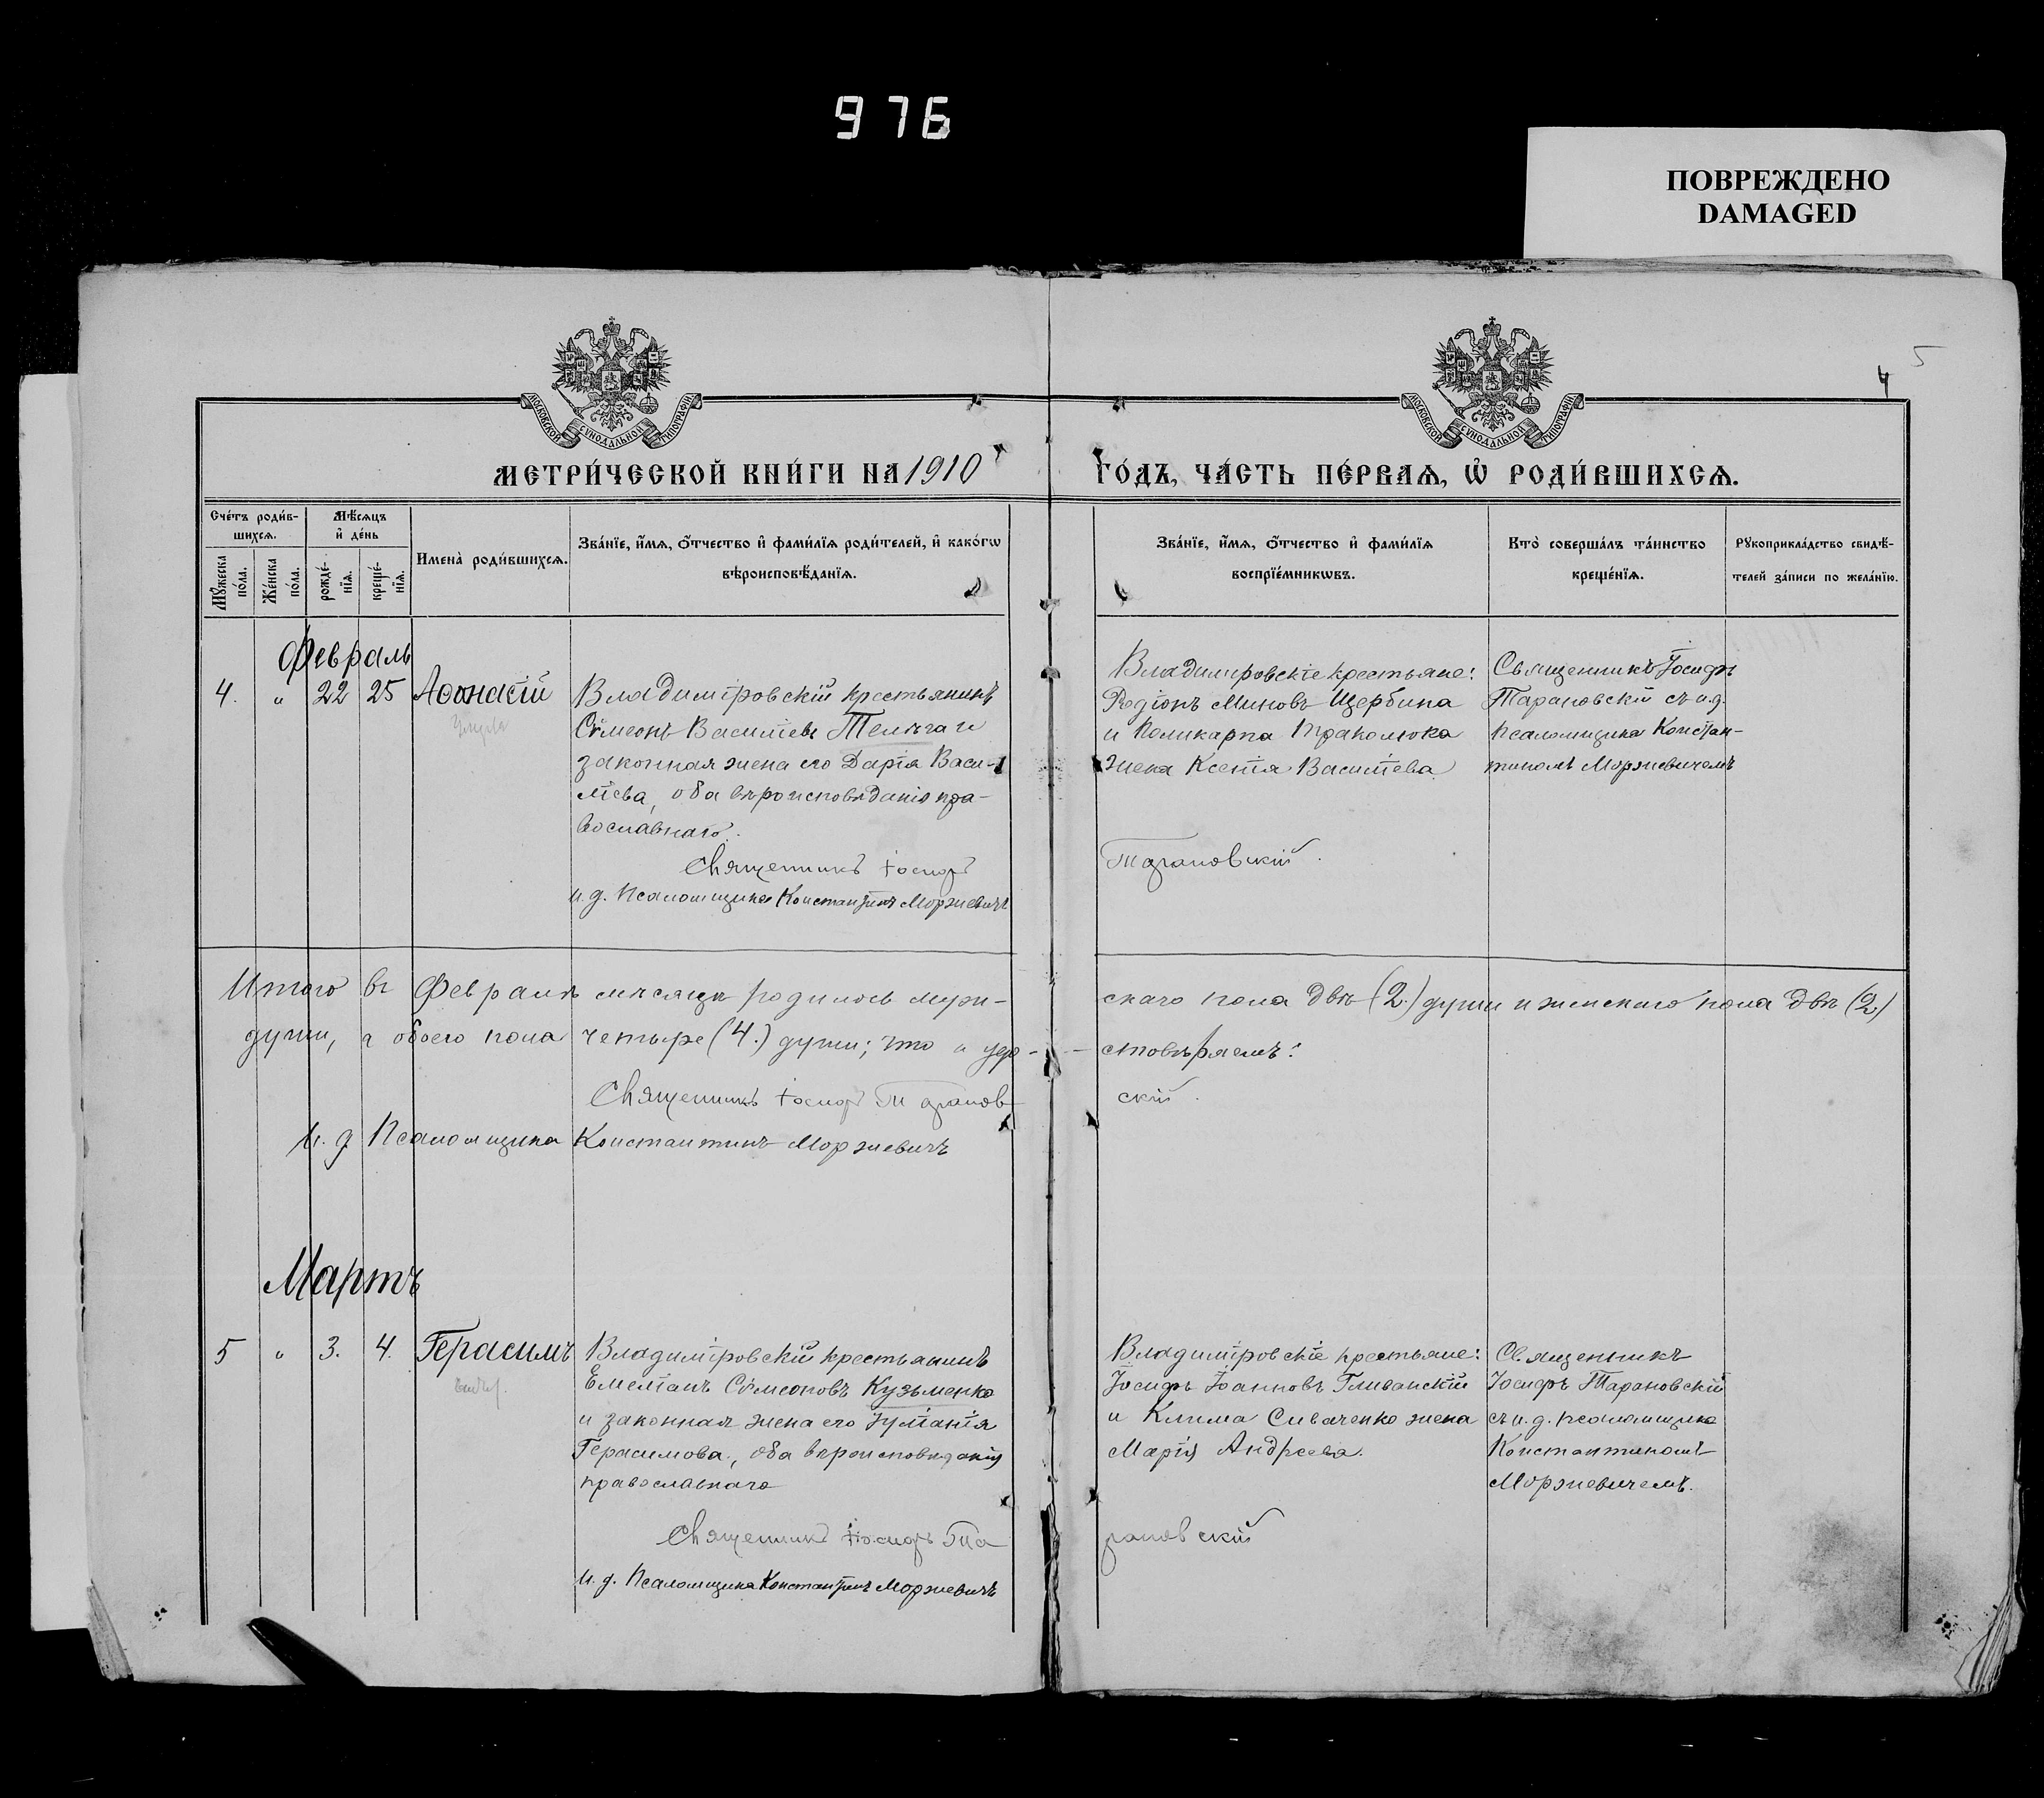 976
ПОВРЕЖДЕНО
DAMAGED
5
4
МОСКОВСКОЙ СѴНОДАЛЬНОЙ ТИПОГРАФІИ
МОСКОВСКОЙ СѴНОДАЛЬНОЙ ТИПОГРАФІИ
МЕТРИ́ЧЕСКОЙ КНИ́ГИ НА 1910 ГО́ДЪ, ЧА́СТЬ ПЕ́РВАѦ, Ѡ҆ РОДИ́ВШИХСѦ.
Сче́тъ роди́в-
шихсѧ.
Мꙋжеска по́ла.
Же́нска по́ла.
Мѣ́сѧцъ
и҆ де́нь
рожде́-
нїѧ.
креще́-
нїѧ.
Имена̀ роди́вшихсѧ.
Зва́нїе, и҆́мѧ, ѻ҆́тчество и҆ фами́лїѧ роди́телей, и҆ како́гѡ
вѣроисповѣ́данїѧ.
Зва́нїе, и҆́мѧ, ѻ҆́тчество и҆ фами́лїѧ
воспрїе́мникѡвъ.
Кто̀ соверша́лъ та́инство
креще́нїѧ.
Рꙋкоприкла́дство свидѣ́-
телей за́писи по жела́нїю.
Февраль
4. " 22 25 Аѳанасій
Владимірoвскій крестьянинъ
Сѵмеонъ Василіевъ Телѣга и
законная жена его Дарія Васи-
ліева, оба вѣроисповѣданія пра-
вославнаго.
Священникъ Іосифъ Тарановскій.
и. д. Псаломщика Константинъ Моржевичъ
Владимировскіе крестьяне:
Родіонъ Миновъ Щербина
и Поликарпа
жена Ксенія Василіева
Священникъ Іосифъ
Тарановскій съ и.д.
псаломщика Констан-
тиномъ Моржевичемъ
Итого въ Февралѣ мѣсяцѣ родилось муж-скаго пола двѣ (2.) души и женскаго пола двѣ (2)
души, а обоего пола четыре (4.) души; что и удо-стовѣряемъ:
Священникъ Іосифъ Тарановскій.
И. д Псаломщика Константинъ Моржевичъ
Мартъ
5 " 3. 4. Герасимъ
Владимірoвскій крестьянинъ
Емеліанъ Сѵмеоновъ Кузьменко
и законная жена его Іуліанія
Герасимова, оба вѣроисповѣданія
православнаго
Священникъ Іосифъ Тарановскій
И. д. Псаломщика Константинъ Моржевичъ
Владимірoвскіе крестьяне:
Іосифъ Іоанновъ Гливанскій
и Клима Сиваченко жена
Марія Андреева.
Священникъ
Іосифъ Тарановскій
съ и. д. псаломщика
Константиномъ
Моржевичемъ.